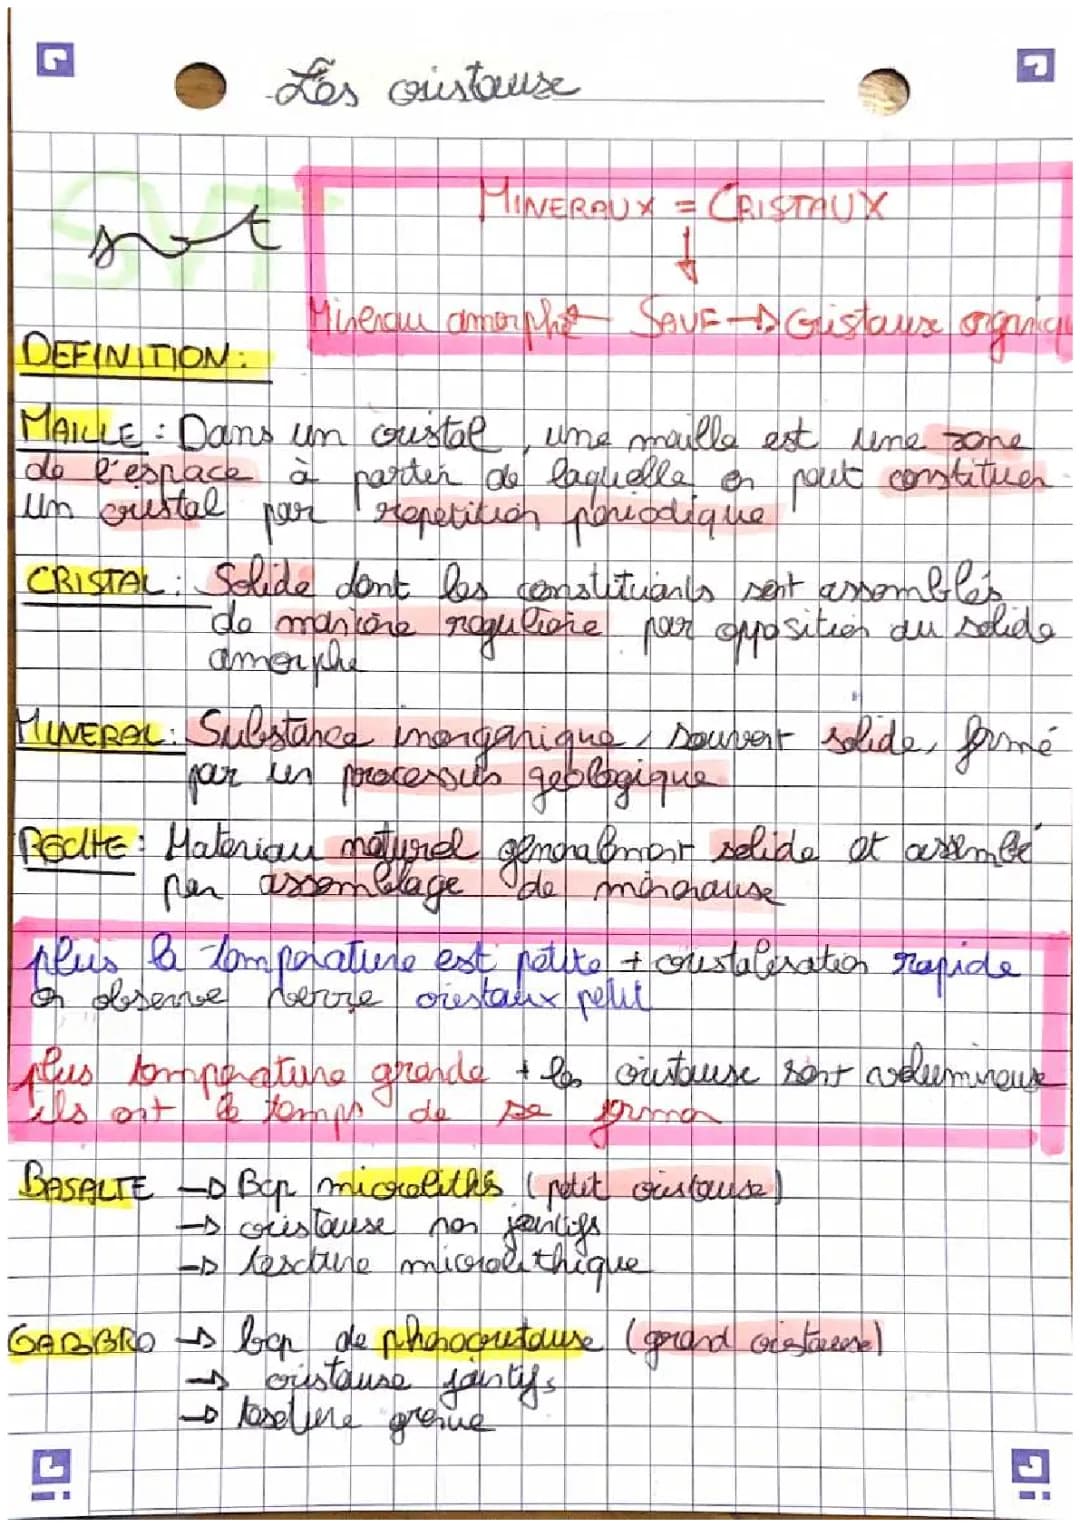 Les cristaux
SVT
svt
MINERAUX = CRISTAUX
Minerau amorphe ← SAUF → Cristaux organiqu
DEFINITION :
MAILLE : Dans un cristal, une maille est une zone
de l'espace à partir de laquelle on peut constituer
un cristal par repetition périodique
CRISTAL : Solide dont les constituants sont assemblés
de manière régulière par opposition au solide
amorphe
MINERAL : Substance inorganique, souvent solide, formé
par un processus géologique
ROCHE : Materiau naturel généralement solide et assemblé
par assemblage de minéraux
plus la température est petite + cristalisation rapide
on observe verre cristaux petit
plus température grande + les cristaux sont volumineux
ils ont le temps de se former
BASALTE → Bcp microliths (petit cristaux)
→ cristaux non jointifs
→ texture microlithique
GABBRO → bcp de phénocristaux (grand cristaux)
→ cristaux jointifs
→ texture grenue